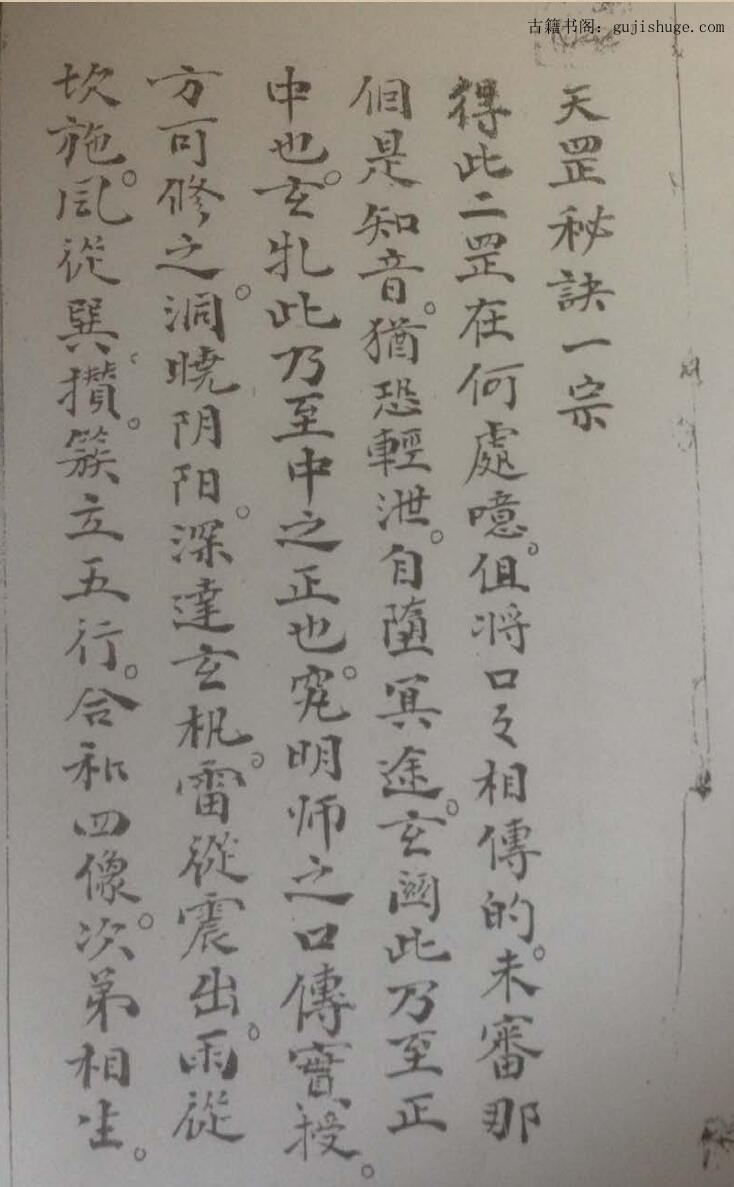 古籍书阁：gujishuge.com
天罡秘訣一宗
得此二罡在何處噫。但将口々相傳的。未審那
個是知音。猶恐輕泄。自墮冥途。玄關此乃至正
中也。玄牝此乃至中之正也。究明师之口傳實授。
方可修之。洞曉阴阳。深達玄机。雷從震出。雨從
坎施。風從巽攢。簇立五行。合和四像。次弟相生。